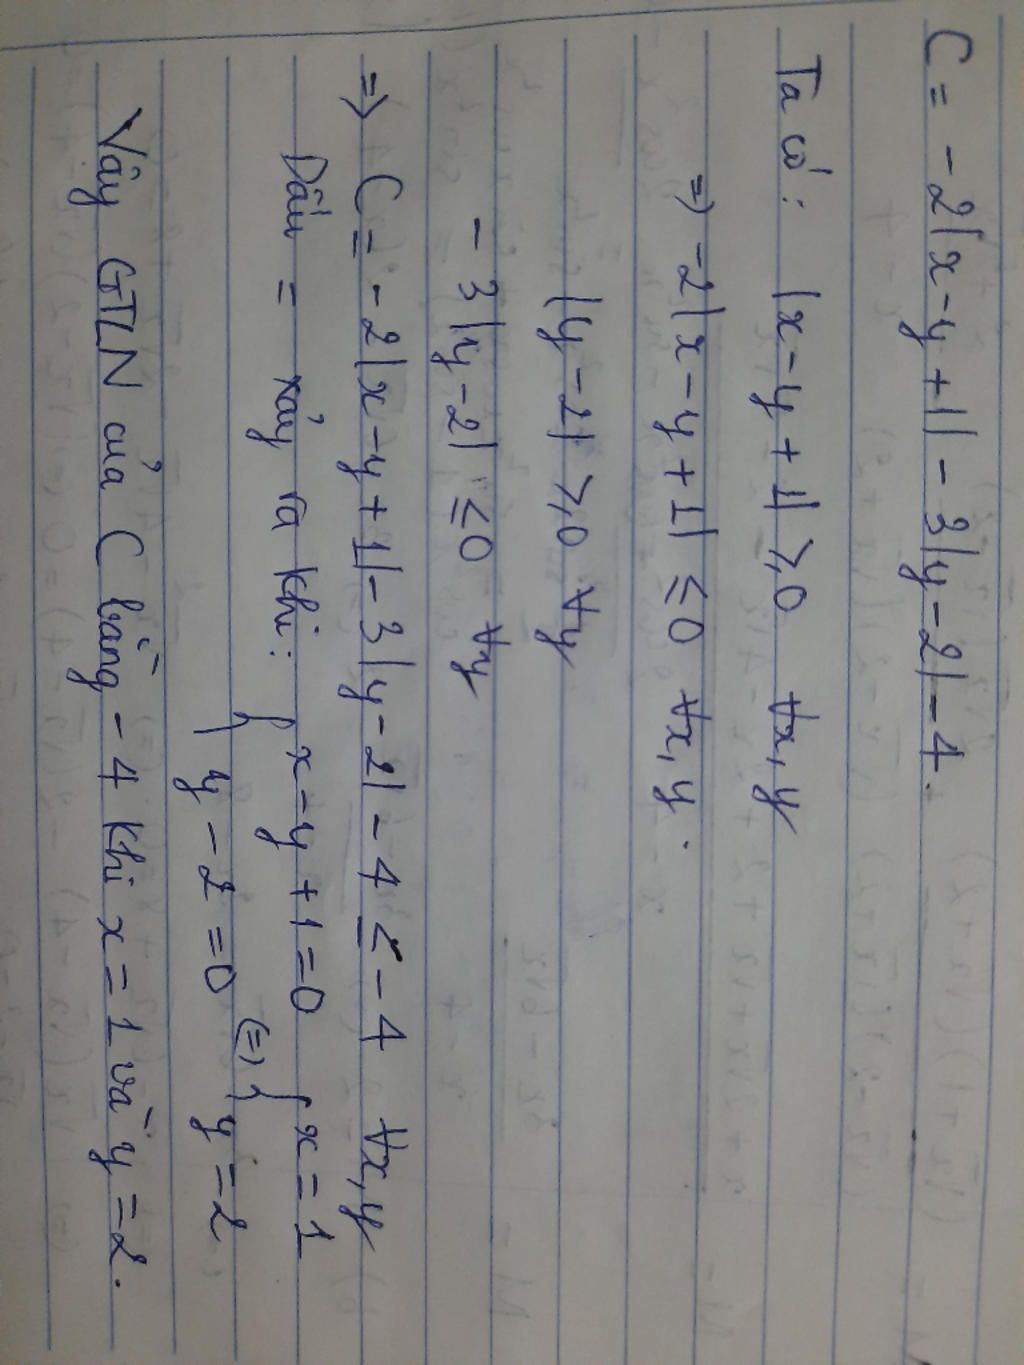 C = -2|x-y+1| - 3|y-2| - 4.
Ta có: |x-y+1| ⩾ 0 ∀x,y
=> -2|x-y+1| ≤ 0 ∀x,y.
|y-2| ⩾ 0 ∀y
- 3|y-2| ≤ 0 ∀y
=> C = -2|x-y+1| - 3|y-2| - 4 ≤ -4 ∀x,y
Dấu = xảy ra khi: { x-y+1=0 (=) { x=1
y-2=0 y=2
Vậy GTLN của C bằng -4 khi x=1 và y=2.